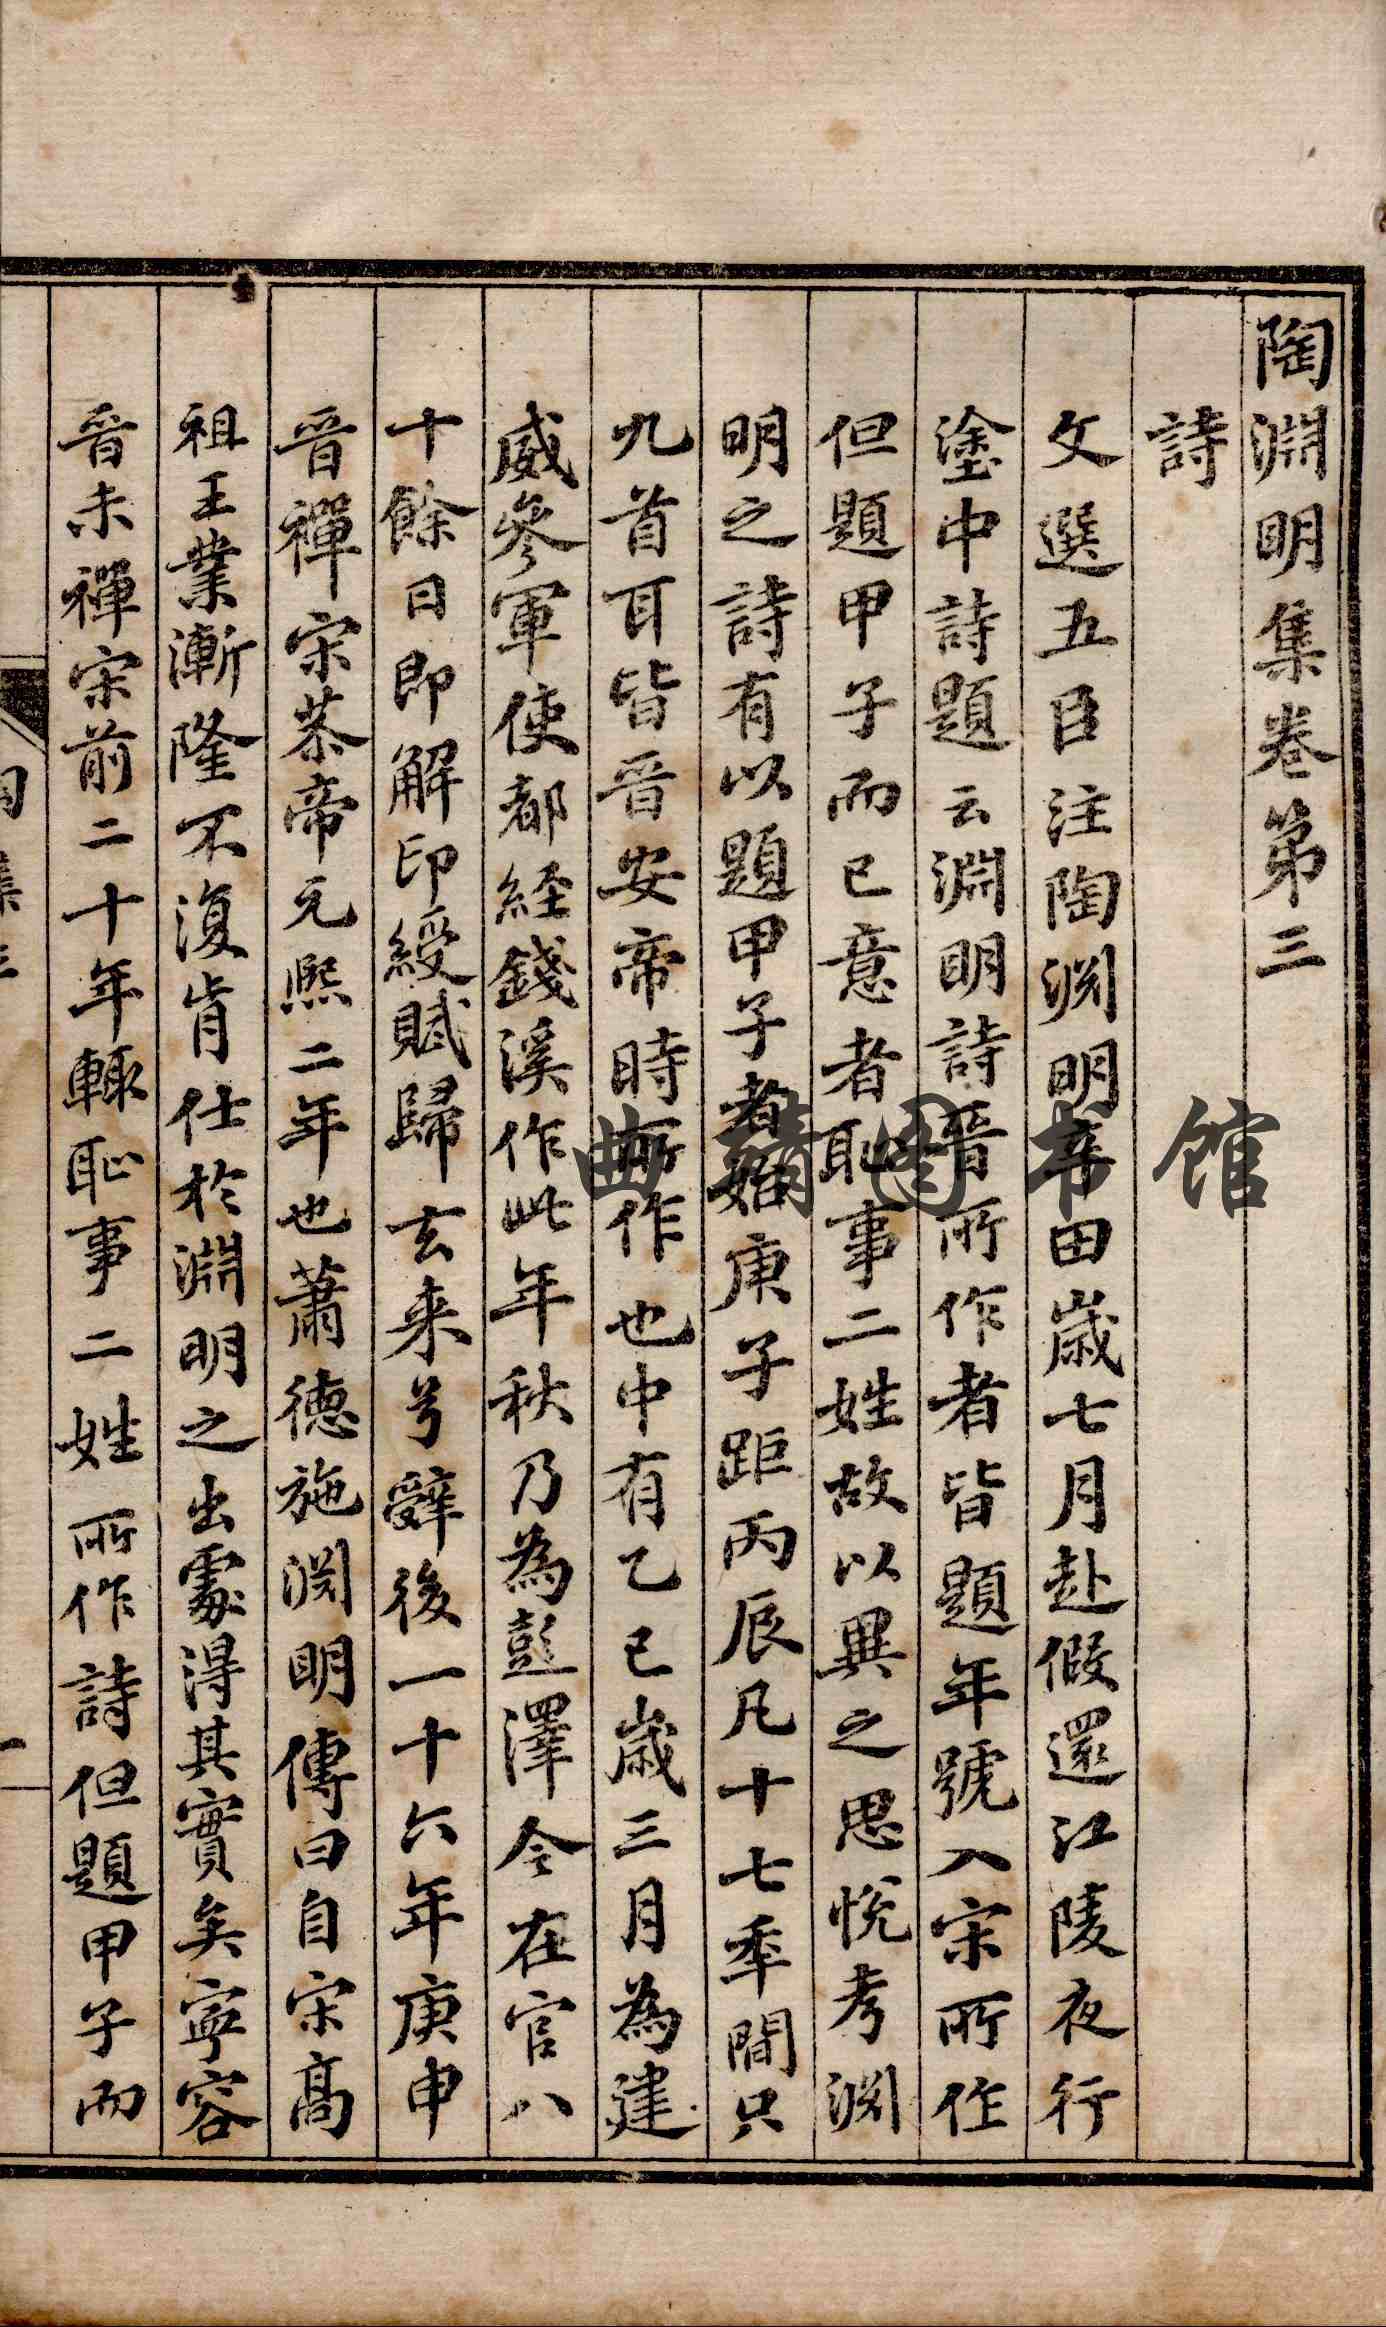 陶淵明集卷第三
詩
文選五臣注陶渕明辛田歳七月赴假還江陵夜行
塗中詩題云淵明詩晉所作者皆題年號入宋所作
但題甲子而已意者恥事二姓故以異之思悅考渕
明之詩有以題甲子者始庚子距丙辰凡十七秊間只
九首耳皆晉安帝時所作也中有乙巳歳三月為建
威參軍使都經錢溪作此年秋乃為彭澤令在官八
十餘日即解印綬賦歸去来兮辭後一十六年庚申
晉禪宋恭帝元熙二年也蕭德施渕明傳曰自宋高
祖王業漸隆不復肯仕於淵明之出處得其實矣寧容
晉未禪宋前二十年輒恥事二姓所作詩但題甲子而
曲靖图书馆